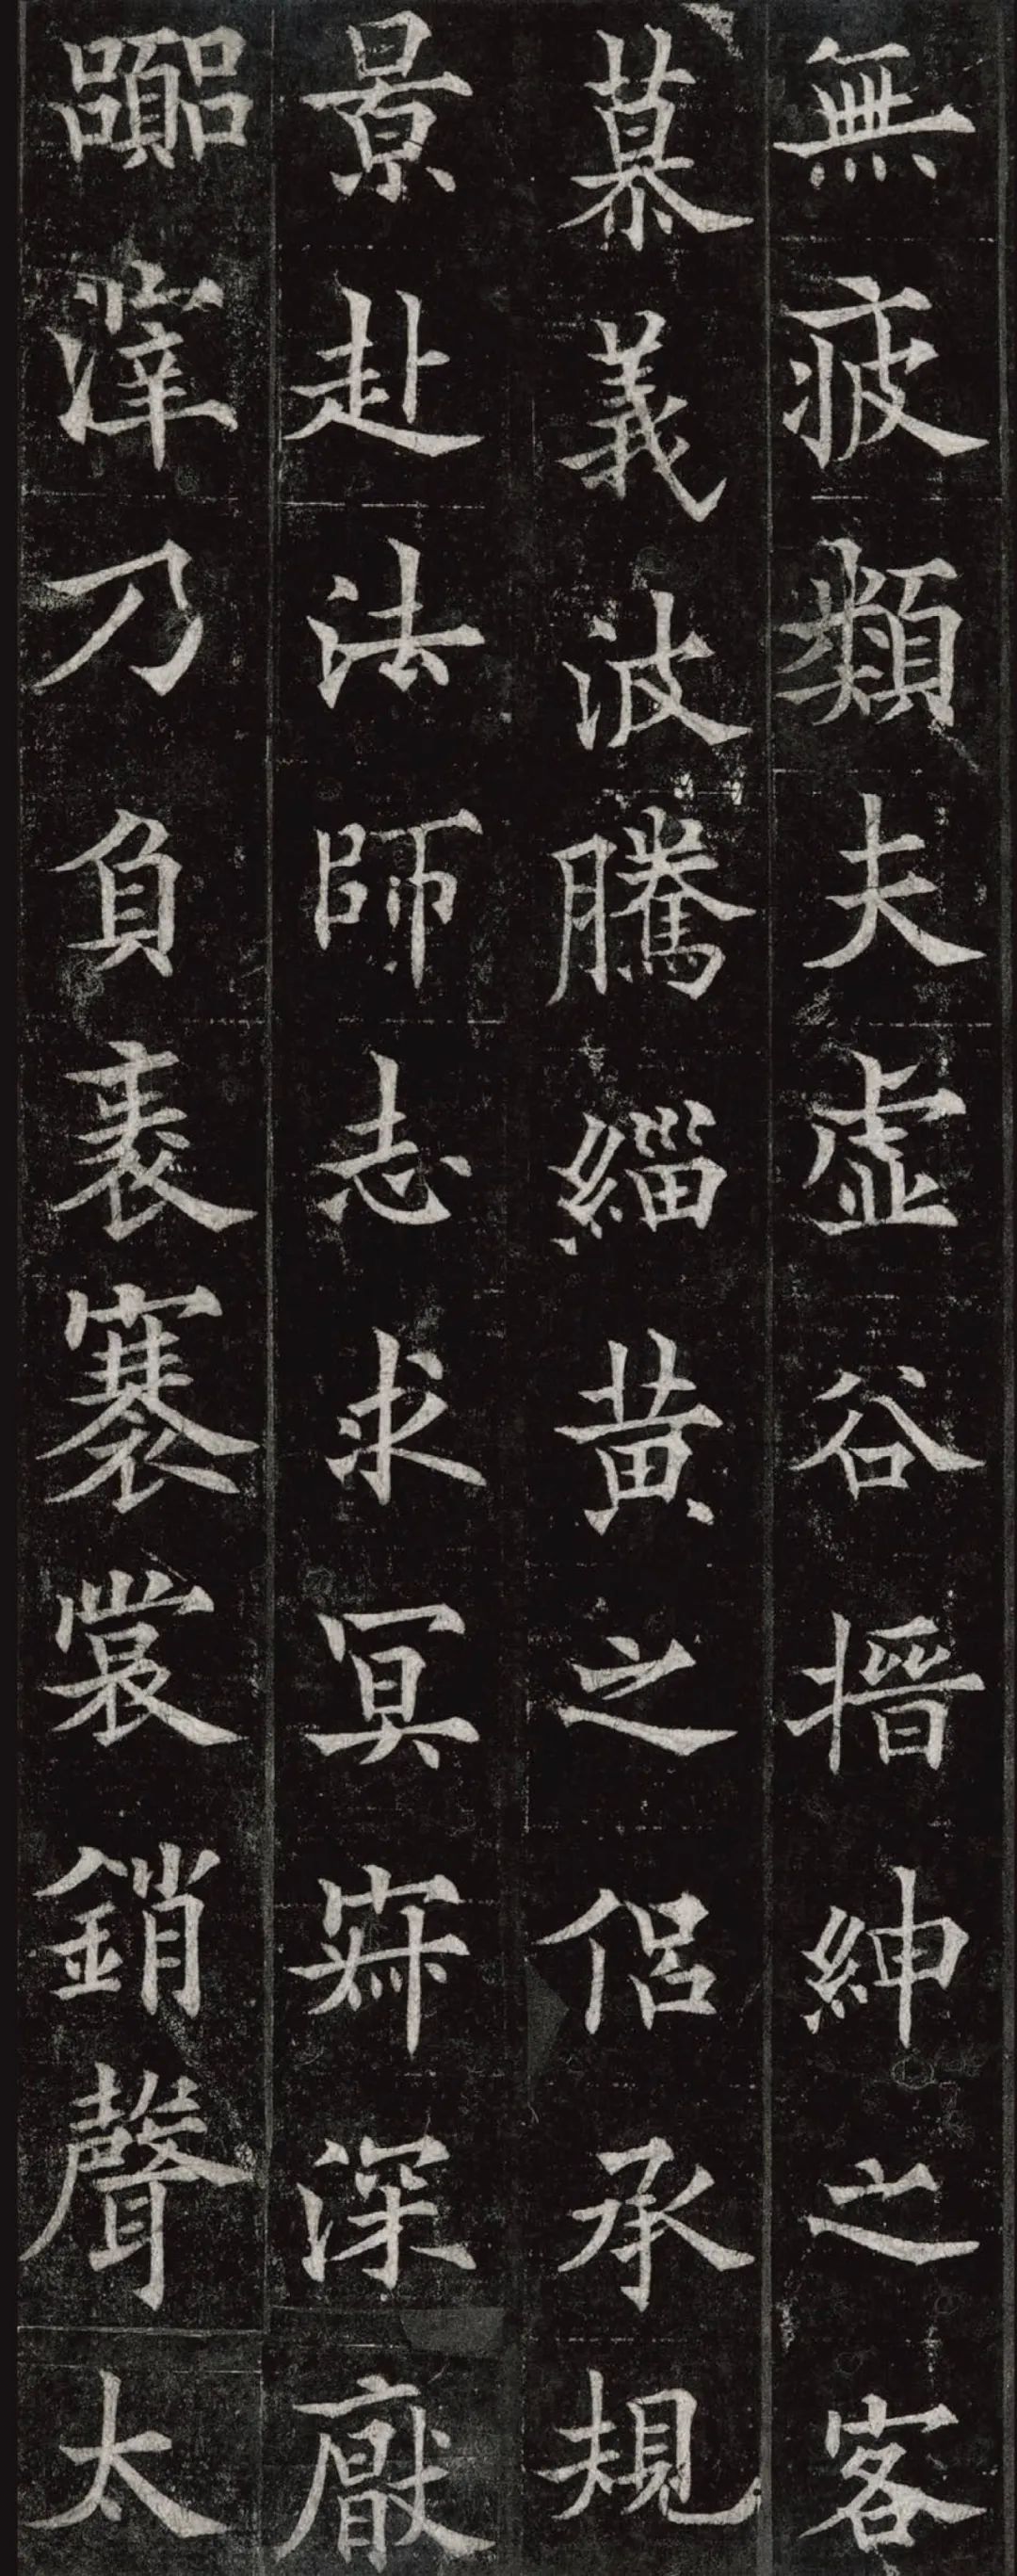 無疲類夫虛谷搢紳之客
慕義波騰緇黃之侶承規
景赴法師志求冥寂深厭
囂滓乃負袠褰裳銷聲太